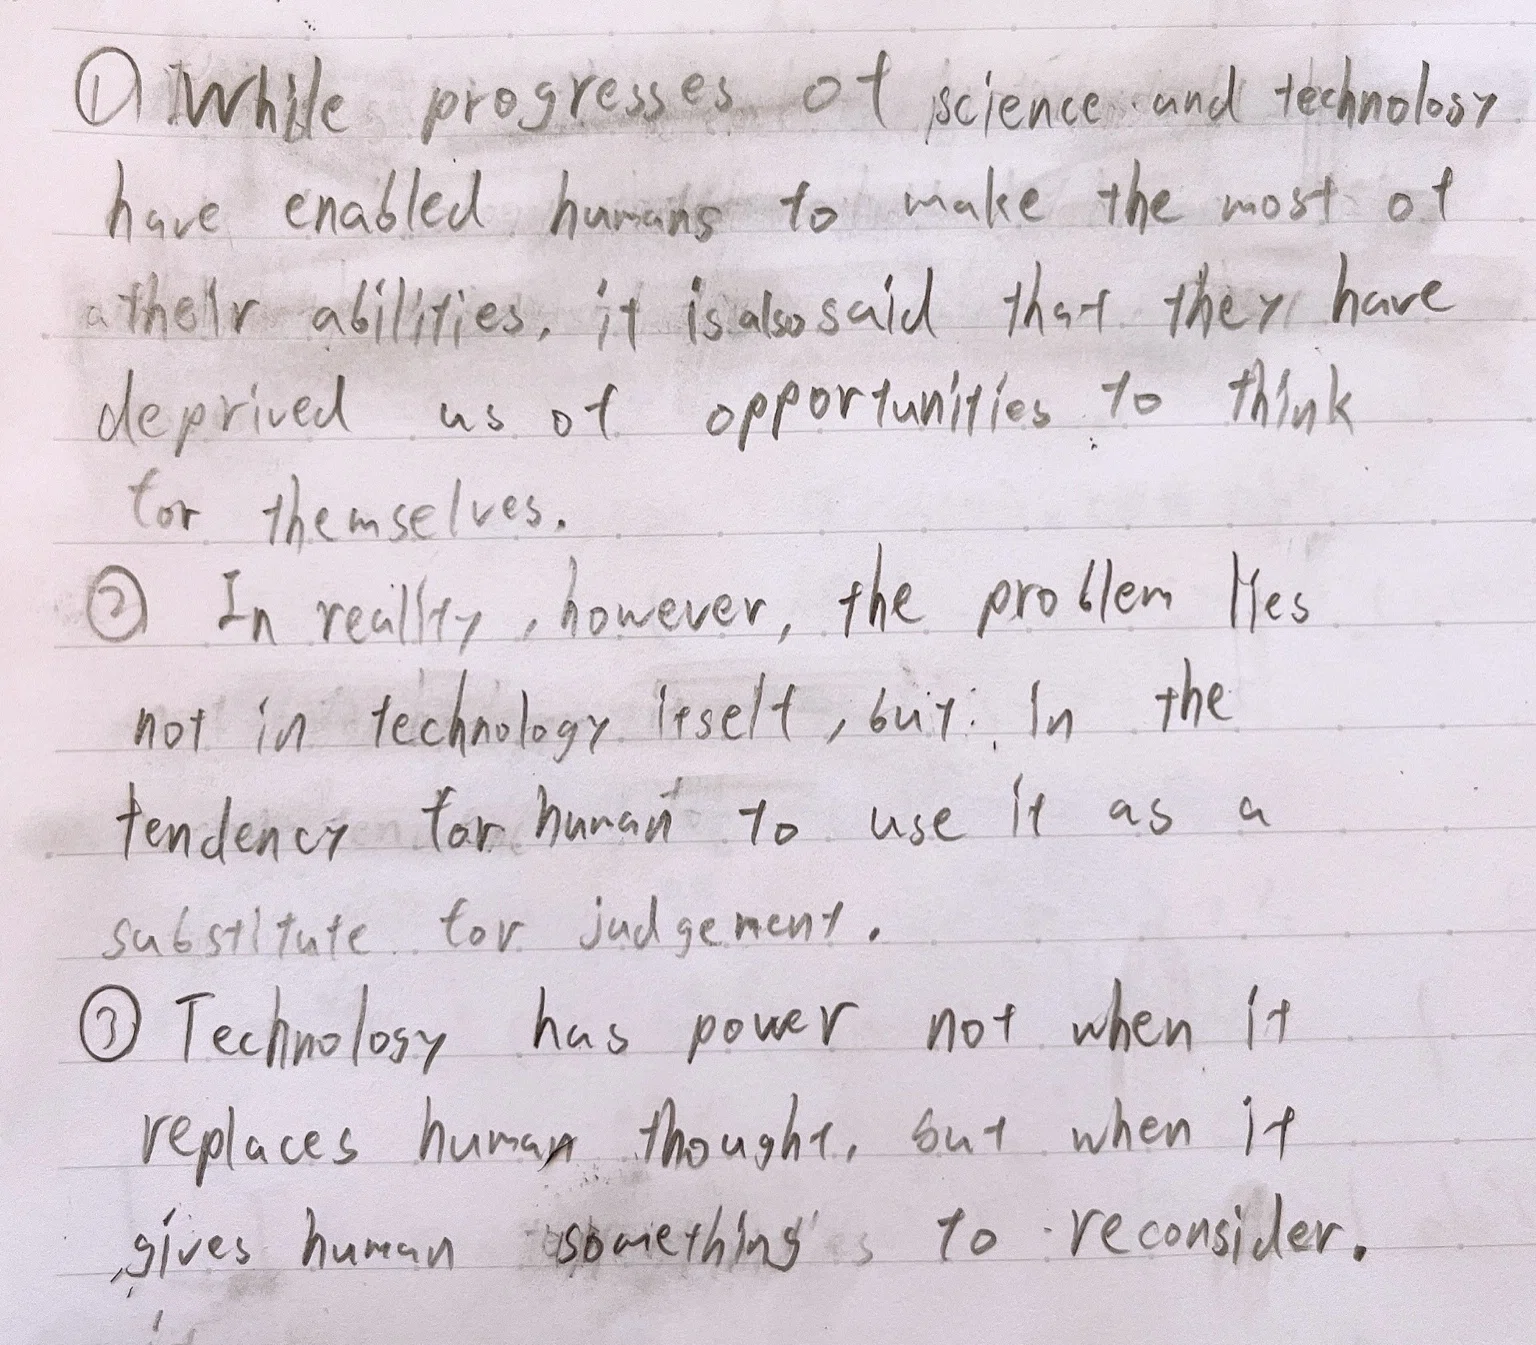 ① While progresses of science and technology
have enabled humans to make the most of
their abilities, it is also said that they have
deprived us of opportunities to think
for themselves.
② In reality, however, the problem lies
not in technology itself, but in the
tendency for human to use it as a
substitute for judgement.
③ Technology has power not when it
replaces human thought, but when it
gives human something to reconsider.